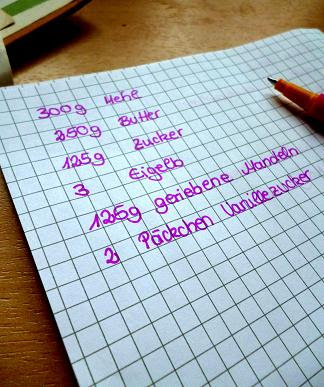 300g Mehl
250g Butter
125g Zucker
3 Eigelb
125g geriebene Mandeln
2 Päckchen Vanillezucker